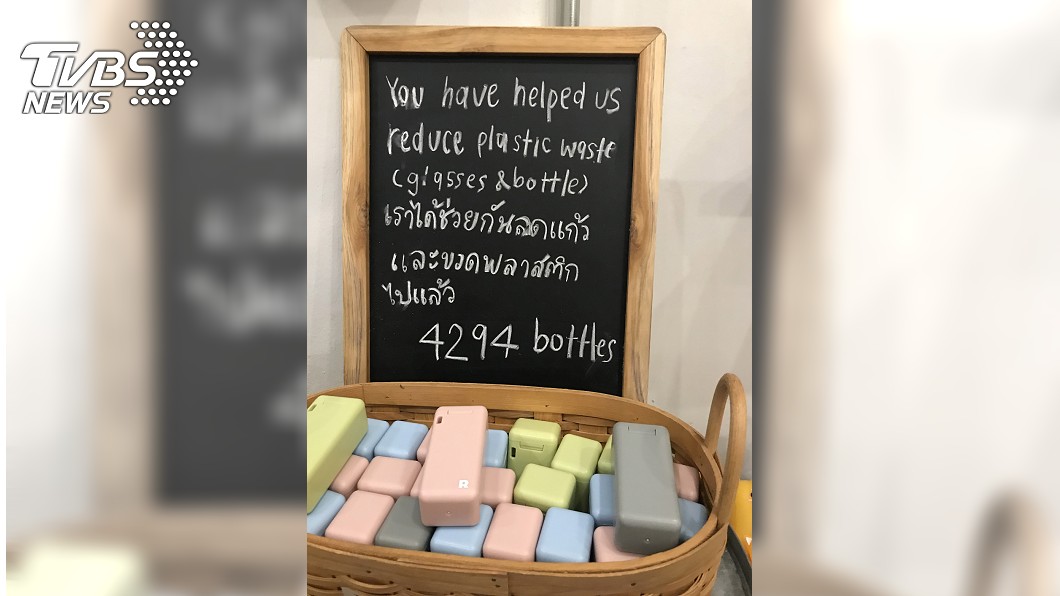 TVBS
NEWS
You have helped us
reduce plastic waste
(glasses & bottle)
เราได้ช่วยกันลดแก้ว
และขวดพลาสติก
ไปแล้ว
4294 bottles
R